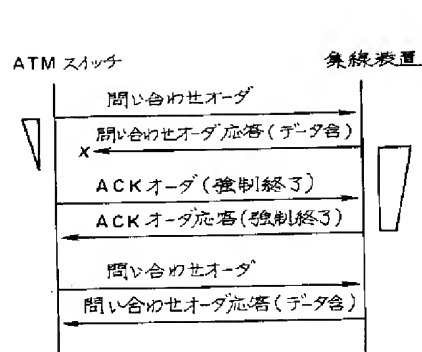 ATM スイッチ
集線装置
問い合わせオーダ
問い合わせオーダ応答(データ含)
X
ACKオーダ(強制終了)
ACKオーダ応答(強制終了)
問い合わせオーダ
問い合わせオーダ応答(データ含)